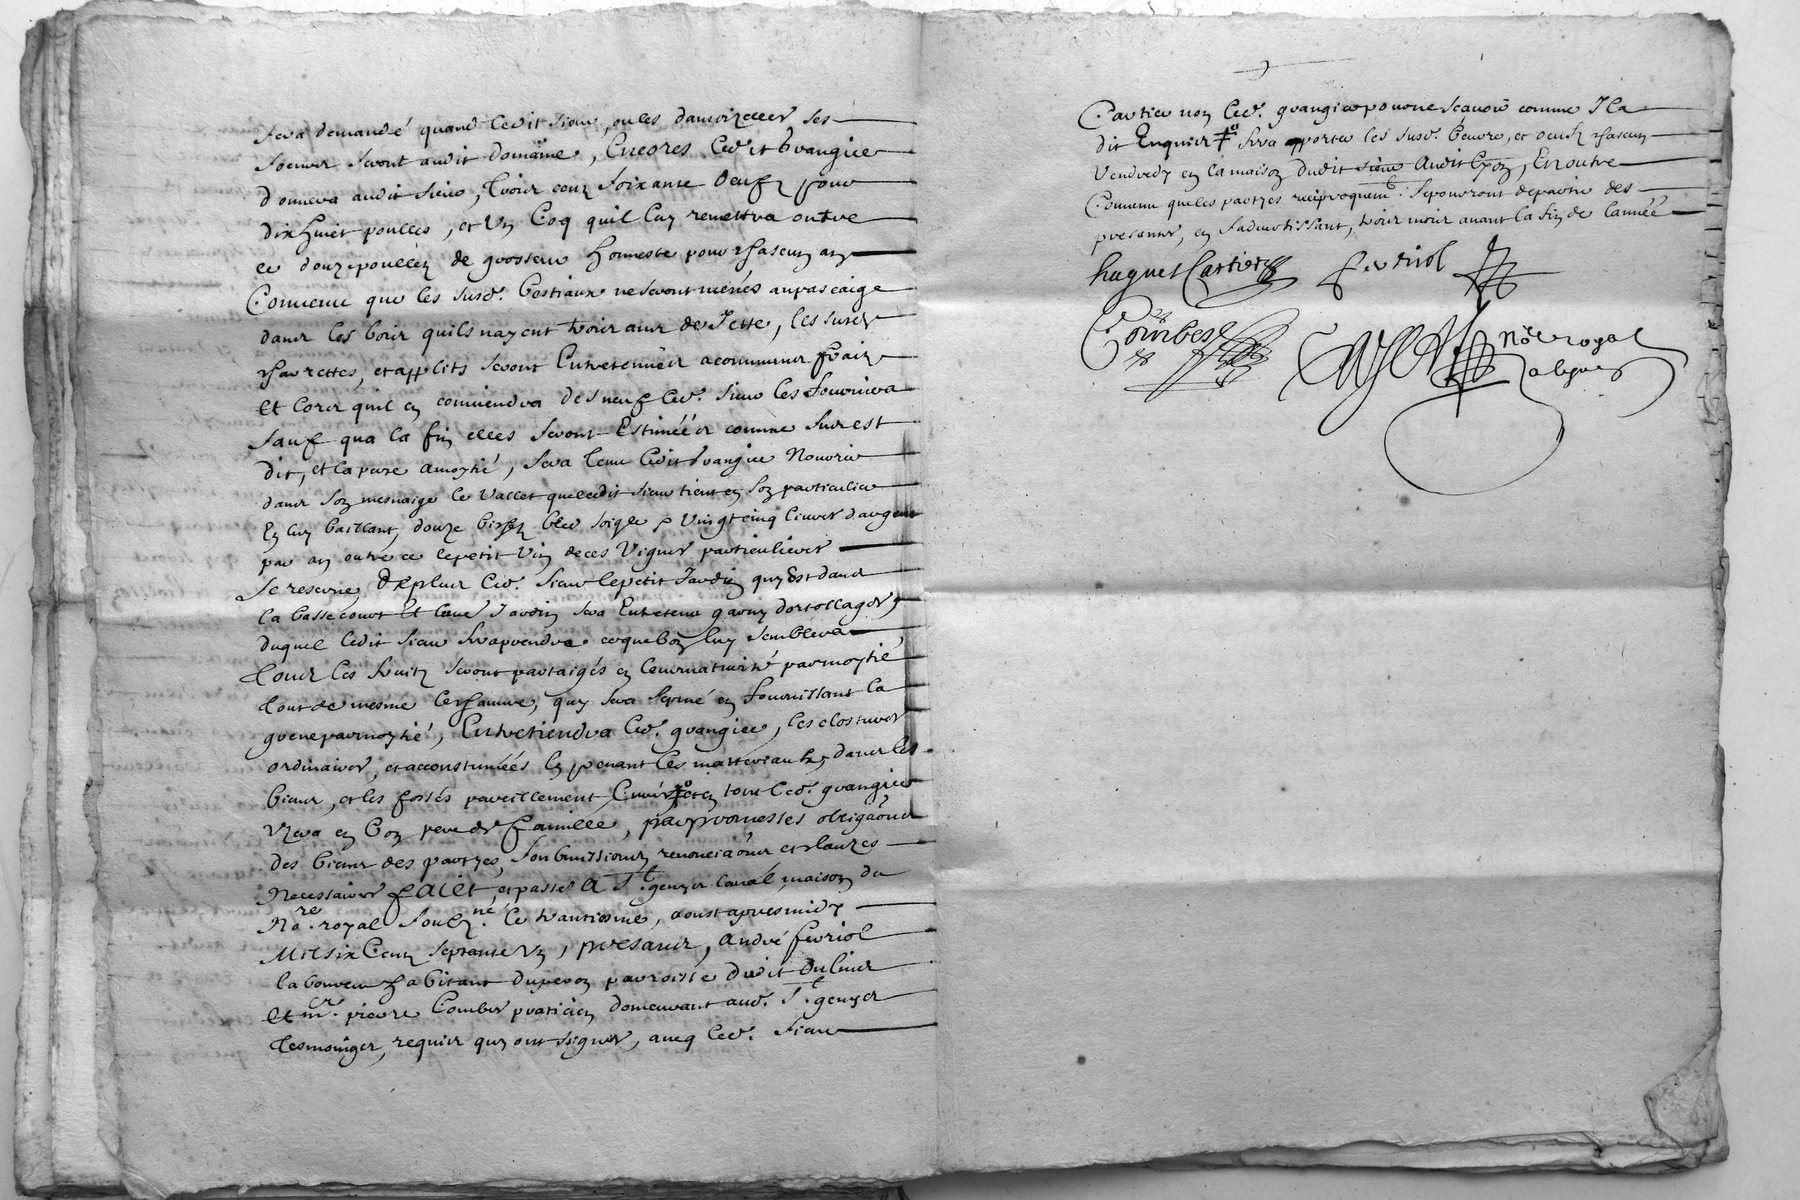 sera demandé quand ledit sieur, ou les damoizelles ses
soeurs seront audit domaine, Encores led it Grangier
donnera audit sieur, trois cens soixante oeufz pour
dix huict poulles, et un Coq quil luy remettra outre
ce douze poullets de grosseur honneste pour chascun an
Convenu que les susd. bestiaux ne seront menés au pascaige
dans les bois quils nayent trois ans de Jette, les susd
charrettes, et applits seront Entretenues a communs fraiz
Et lors quil en conviendra des neufz led. sieur les fournira
sauf qua la fin elles seront Estimées comme sus est
dit, et la perte a moytié, sera tenu ledit Grangier Nourrir
dans son mesnaige le Vallet que ledit sieur tient en son particulier
En luy baillant, douze bichez bled soigle & vingt cinq livres dargent
par an outre ce le petit vin de ces vignes particulieres
Se reserve De plus led. sieur le petit Jardin quy Est dans
la basse court Et leur Jardin sera Entretenu garny dortollages
duquel ledit sieur sra prendra ce que bon luy semblera
Tous les fruitz seront partaigés en leur maturité par moytié
tout de mesme le chanvre, quy sera semé en fournissant la
grene par moytié, Entretiendra led. grangier, les clostures
ordinaires, et accoustumées En prenant les matteriaulx dans les
biens, et les fossés pareillement Curés et en tout led. grangier
Uzera en bon pere de famille, par promesses obligaõns
des biens des partyes, soubmissions renonciaõns et clauzes
Necessaires FAICT, et passé A St. genyes laval, maison du
No.re royal soubz.né le trantiesme, aoust apres midy
Mil six Cens septante un, presans, André feuriol
laboureur habitant du peron parroisse dudit Oulins
Et m.re pierre Combes praticien demeurant aud. St. genyes
tesmoings, requis quy ont signés, avecq led. sieur
Cartier non led. grangier pour ne scavoir comme Il a
dit Enquis sera apporter les susd. beurre, et oeufz chascun
Vendredy en la maison dudit sieur Audit Lyon, En outre
Convenu que les partyes reciproquem.t se pourront departir des
presantes, en sadvertissant, trois mois avant la fin de lannée
huguet Cartier feuriol
Combes
No.re royal